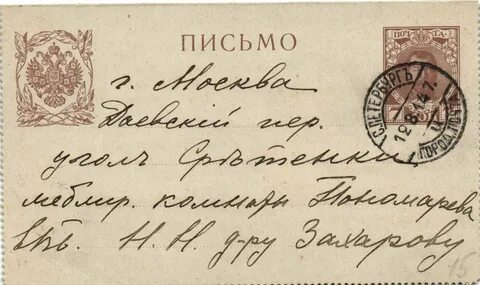 ПИСЬМО
ПОЧТА
С.ПЕТЕРБУРГЪ
12.8.14.7.
г. Москва
Даевскій пер.
уголъ Срѣтенки
меблир. комнаты Пономарева
Н. Н. д-ру Захарову
15